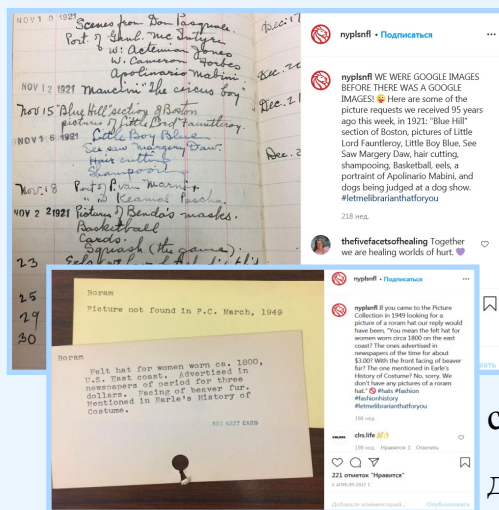 NOV 10 1921
Scenes from Don Pasquale
Port. of Genl. Mc Intyre
W. Acteman Jones
W. Cameron Forbes
Apolinario Mabini
NOV 12 1921 Mancini "The circus boy"
Nov 15 "Blue Hill" section of Boston
pictures of Little Lord Fauntleroy.
NOV 16 1921 Little Boy Blue
See saw Margery Daw.
Hair cutting
Shampooing
Nov. 18
" " Keamal Pascha
NOV 22 1921 Pictures of Benda's masks.
Basketball
Cards.
Squash (the game).
23
25
29
30
nyplsnfl • Подписаться
nyplsnfl WE WERE GOOGLE IMAGES
BEFORE THERE WAS A GOOGLE
IMAGES! 😜 Here are some of the
picture requests we received 95 years
ago this week, in 1921: "Blue Hill"
section of Boston, pictures of Little
Lord Fauntleroy, Little Boy Blue, See
Saw Margery Daw, hair cutting,
shampooing, Basketball, eels, a
portrait of Apolinario Mabini, and
dogs being judged at a dog show.
#letmelibrarianthatforyou
218 нед.
thefivefacetsofhealing Together
we are healing worlds of hurt. 💜
Roram
Picture not found in P.C. March, 1949
Roram
Felt hat for women worn ca. 1800,
U.S. East coast. Advertised in
newspapers of period for three
dollars. Facing of beaver fur.
Mentioned in Earle's History of
Costume.
SEE NEXT CARD
nyplsnfl • Подписаться
nyplsnfl If you came to the Picture
Collection in 1949 looking for a
picture of a roram hat our reply would
have been, "You mean the felt hat for
women worn circa 1800 on the east
coast? The ones advertised in
newspapers of the time for about
$3.00? With the front facing of beaver
fur? The one mentioned in Earle's
History of Costume? No, sorry. We
don't have any pictures of a roram
hat." 🚫 #hats #fashion
#fashionhistory
#letmelibrarianthatforyou
198 нед.
clrs.life
198 нед. Нравится: 1 Ответить
221 отметок "Нравится"
5 АПРЕЛЯ 2017 Г.
Добавьте комментарий...
Опубликовать